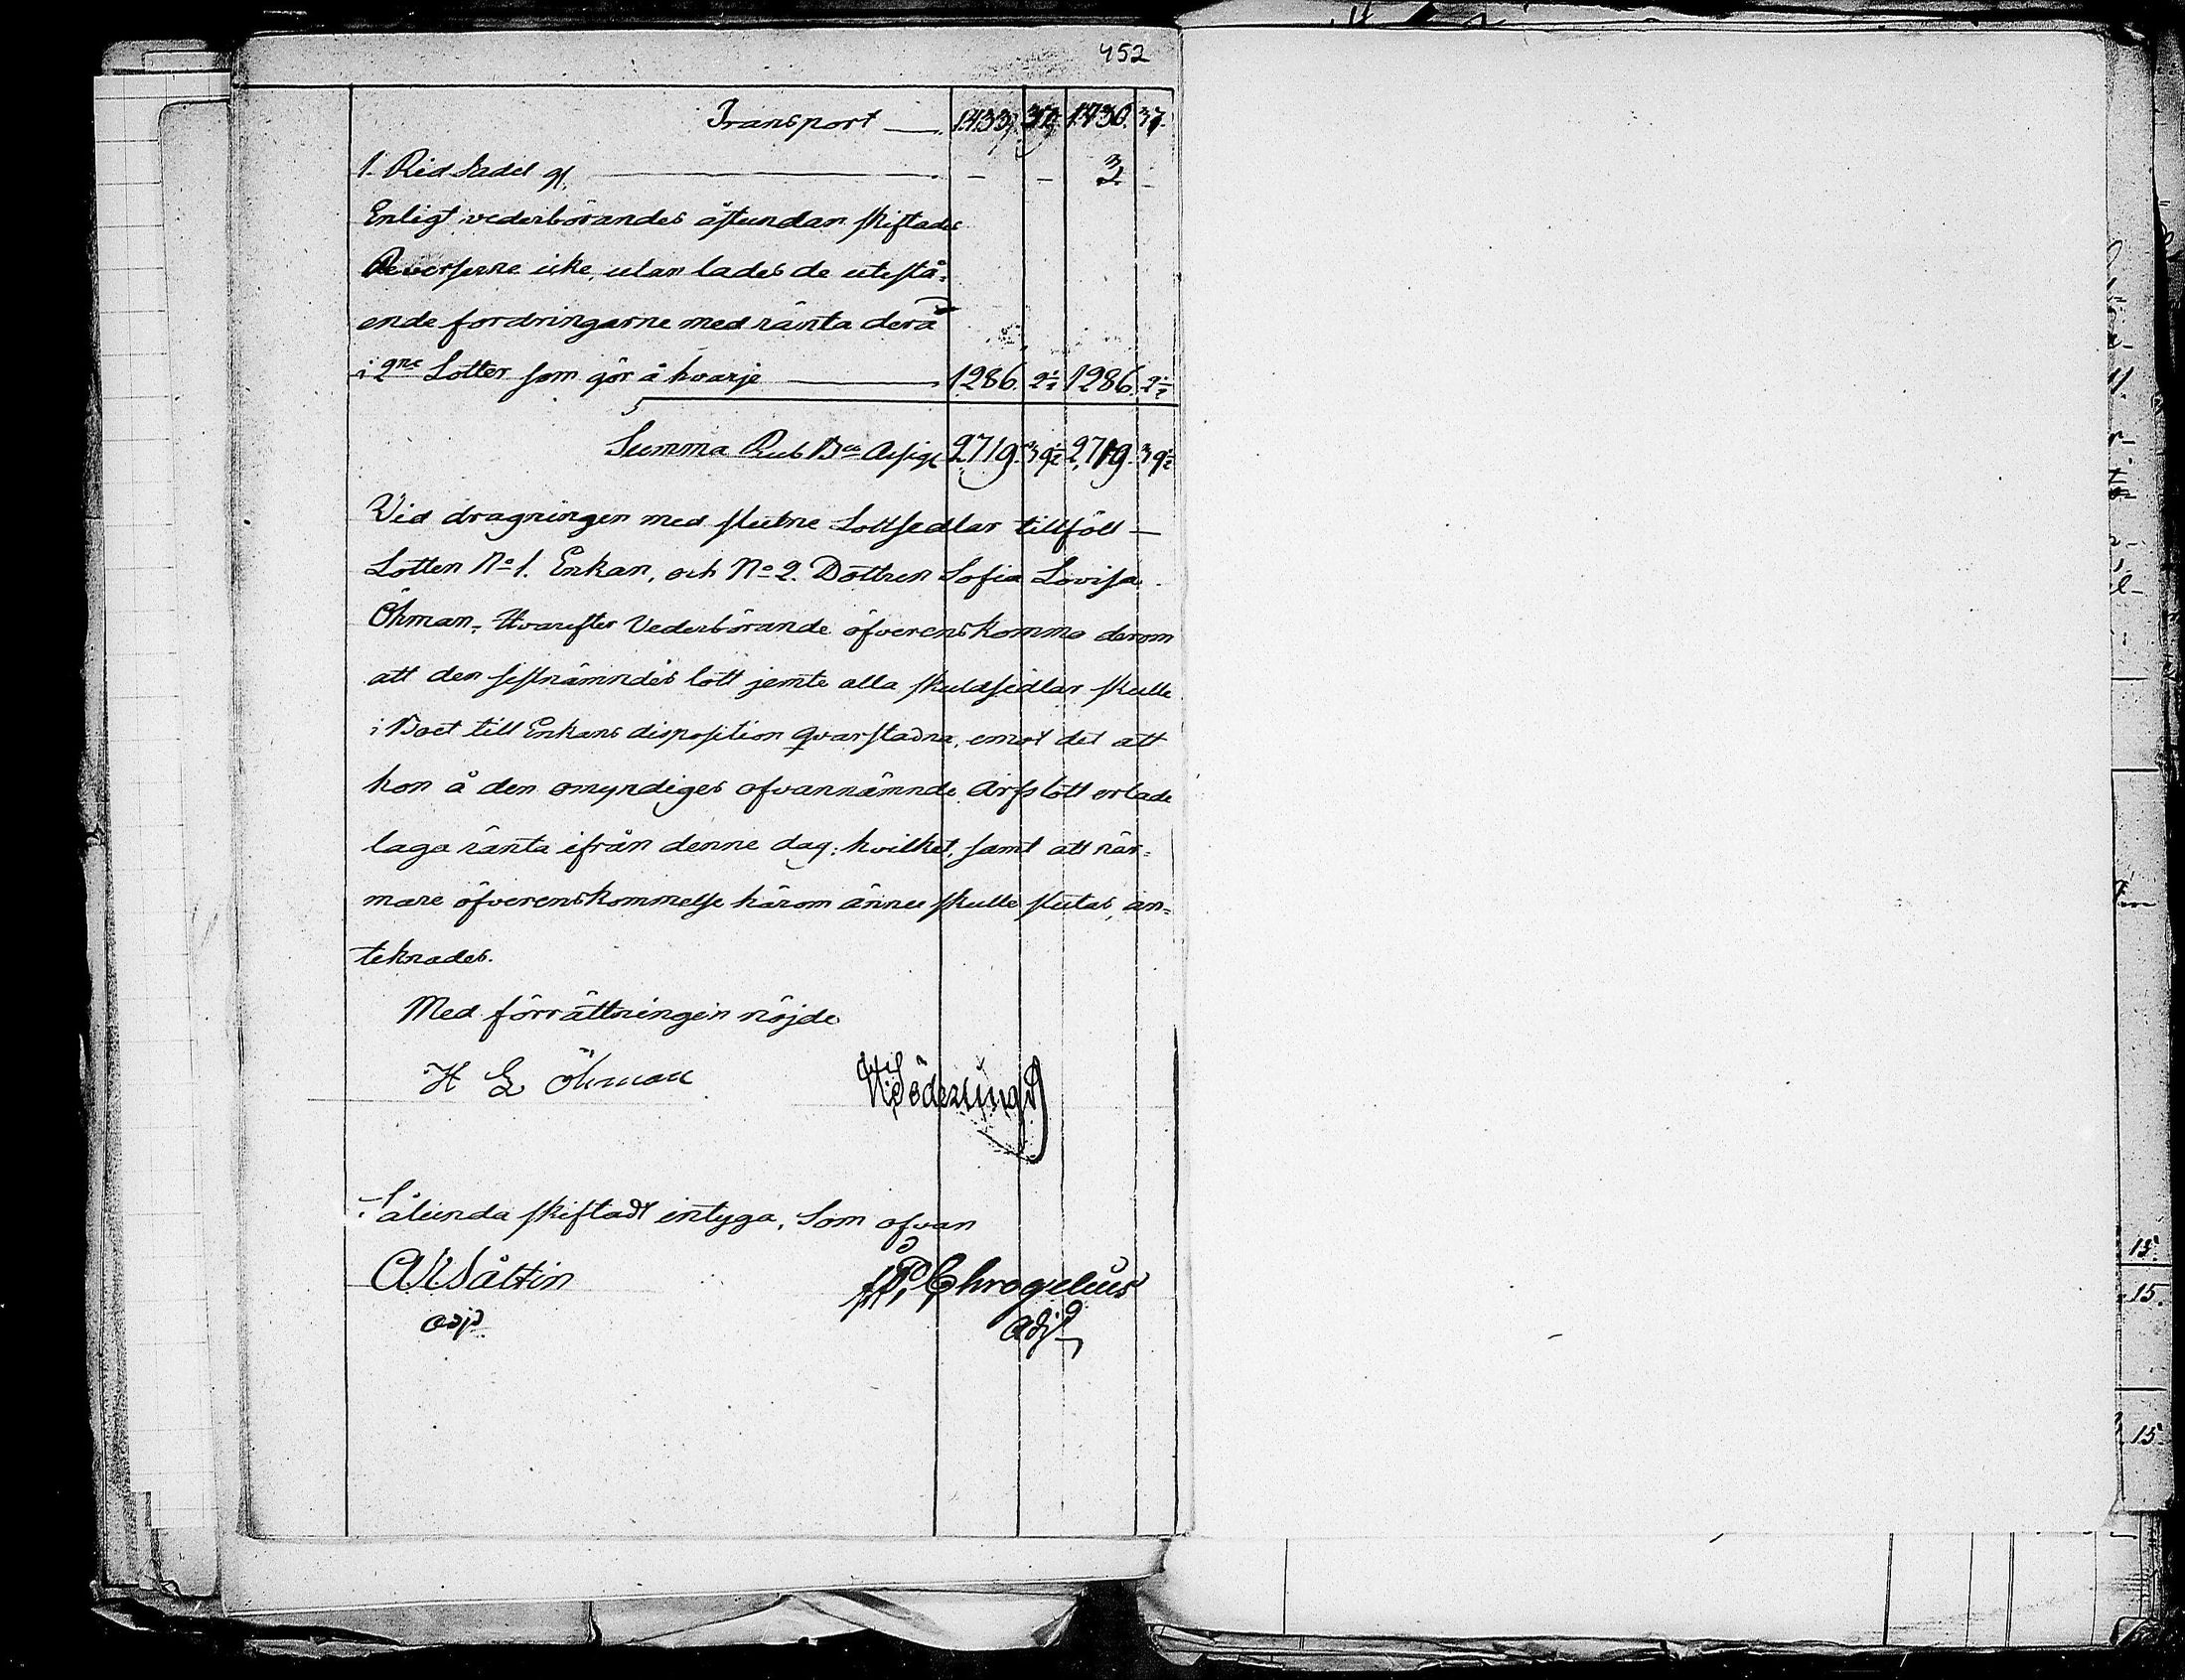 452
Transport — 1433. 37. 1430. 37.
1. Rid Sadel gl. — - - 3. -
Enligt vederbörandes åstundan skiftades
Reverserne icke, utan lades de utestå-
ende fordringarne med ränta derå
i 2ne Lotter som gör å hvarje — 1286. 2½ 1286. 2½
Summa Rub Bco Assigt 2719. 39½ 2719. 39½
Vid dragningen med slutne Lottsedlar tillföll —
Lotten No 1. Enkan, och No 2. Dottren Sofia Lovisa
Öhman, Hvarefter Vederbörande öfverenskommo derom
att den sistnämndes lott jemte alla skuldsedlar skulle
i Boet till Enkans disposition qvarstadna, emot det att
hon å den omyndiges ofvannämnde Arfslott erlade
laga ränta ifrån denne dag; hvilket, samt att när-
mare öfverenskommelse härom ännu skulle slutas, an-
teknades.
Med förrättningen nöjde
H G Öhman Söderlund
Sålunda skiftadt intyga, Som ofvan
A R Såltin Chrogelius
adj. adj.
15.
15.
15.